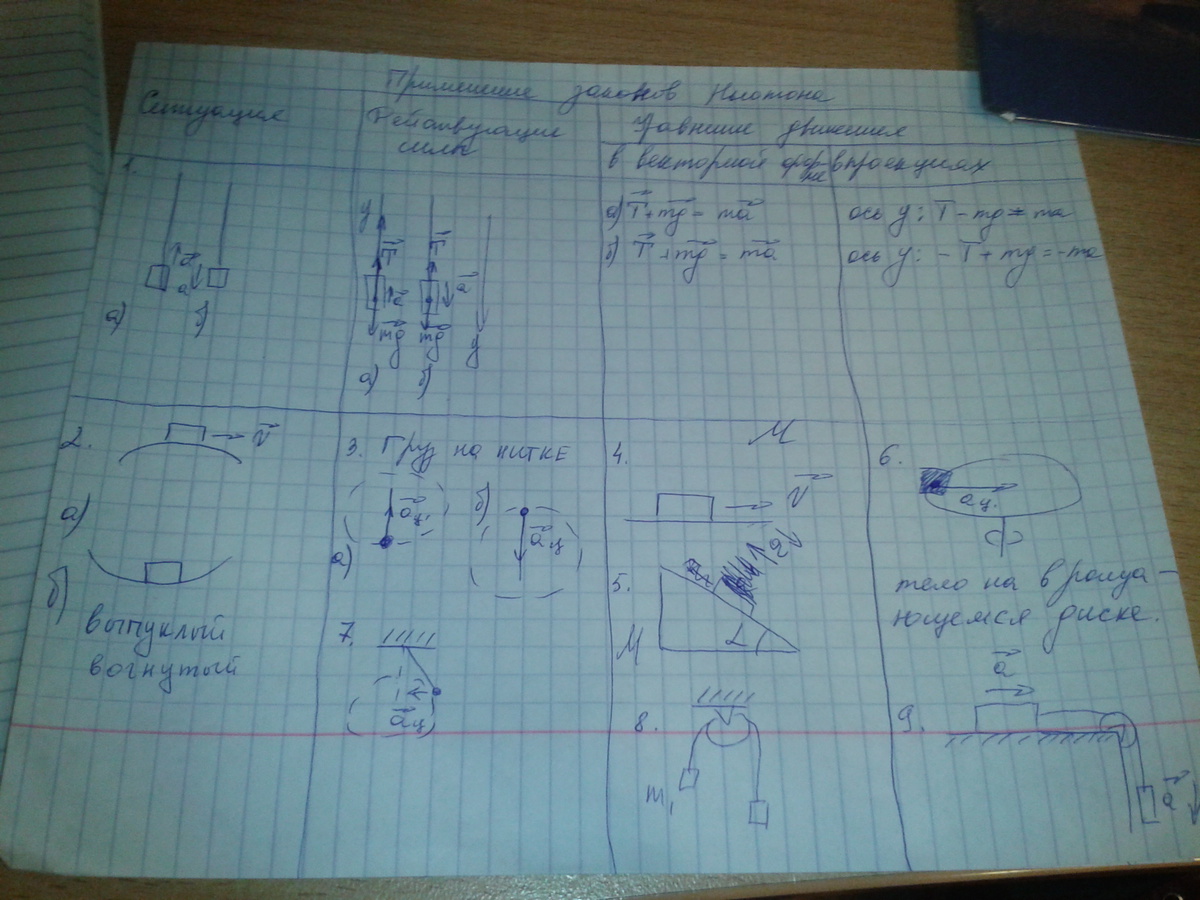 Применение законов Ньютона
Ситуация
Действующие силы
Уравнение движения
в векторной форме
в проекциях
1.
а)
б)
a
a
y
T
a
mg
а)
T
a
mg
y
б)
а) T + mg = ma
ось y: T - mg = ma
б) T + mg = ma
ось y: - T + mg = -ma
2.
V
а)
б)
выпуклый
вогнутый
3. Груз на нитке
а)
aц.
б)
aц
4.
M
V
5.
M
α
6.
aц.
тело на враща-
ющемся диске.
7.
aц
8.
m1
9.
a
a